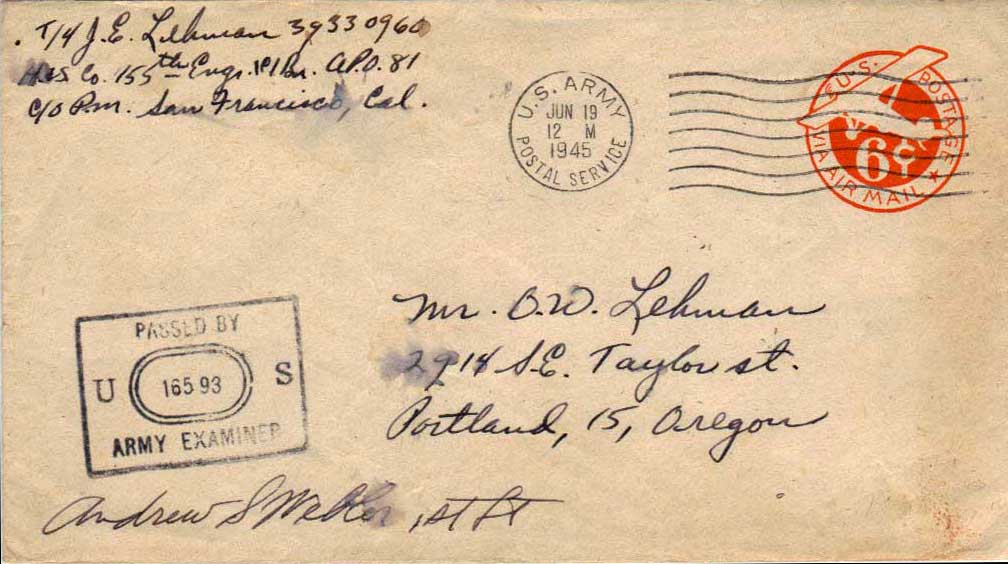 T/4 J.E. Lehman 39330960
H&S Co. 155th Engr. A.P.O. 81
c/o P.M. San Francisco, Cal.
U.S. ARMY
JUN 19
12 M
1945
POSTAL SERVICE
U.S. POSTAGE
6¢
VIA AIR MAIL
Mr. O.W. Lehman
2918 S.E. Taylor st.
Portland, 15, Oregon
PASSED BY
U 16593 S
ARMY EXAMINER
Andrew S 1st Lt